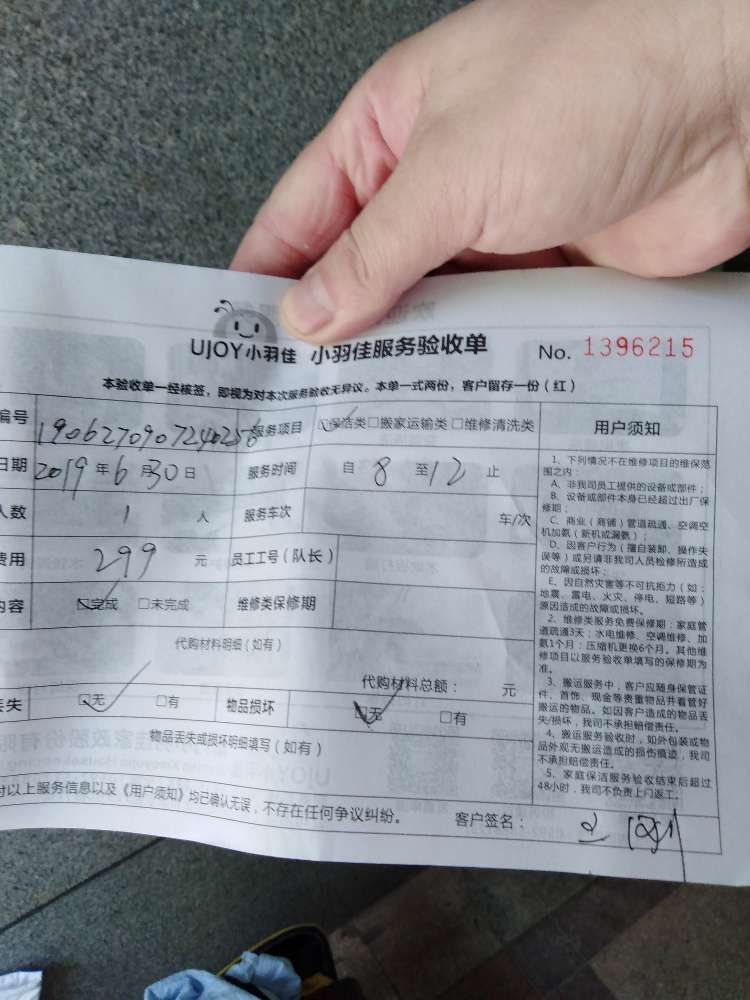 UJOY小羽佳 小羽佳服务验收单 No. 1396215
本验收单一经核签，即视为对本次服务验收无异议。本单一式两份，客户留存一份（红）
编号 190627090724025 服务项目 ☑保洁类□搬家运输类□维修清洗类
日期 2019年6月30日 服务时间 自 8 至 12 止
人数 1 人 服务车次 车/次
费用 299 元 员工工号（队长）
内容 ☑完成 □未完成 维修类保修期
代购材料明细（如有）
代购材料总额： 元
丢失 ☑无 □有 物品损坏 ☑无 □有
物品丢失或损坏明细填写（如有）
对以上服务信息以及《用户须知》均已确认无误，不存在任何争议纠纷。 客户签名：
用户须知
1、下列情况不在维修项目的维保范
围之内：
A、非我司员工提供的设备或部件；
B、设备或部件本身已经超过出厂保
修期；
C、商业（商铺）管道疏通、空调空
机加氨（新机或漏氨）；
D、因客户行为（擅自装卸、操作失
误等）或另请非我司人员检修所造成
的故障或损坏；
E、因自然灾害等不可抗拒力（如：
地震、雷电、火灾、停电、短路等）
原因造成的故障或损坏。
2、维修类服务免费保修期：家庭管
道疏通3天；水电维修、空调维修、加
氨1个月；压缩机更换6个月。其他维
修项目以服务验收单填写的保修期为
准。
3、搬运服务中，客户应随身保管证
件、首饰、现金等贵重物品并看管好
搬运的物品。如因客户造成的物品丢
失/损坏，我司不承担赔偿责任。
4、搬运服务验收时，如外包装或物
品外观无搬运造成的损伤痕迹，我司
不承担赔偿责任。
5、家庭保洁服务验收结束后超过
48小时，我司不负责上门返工。